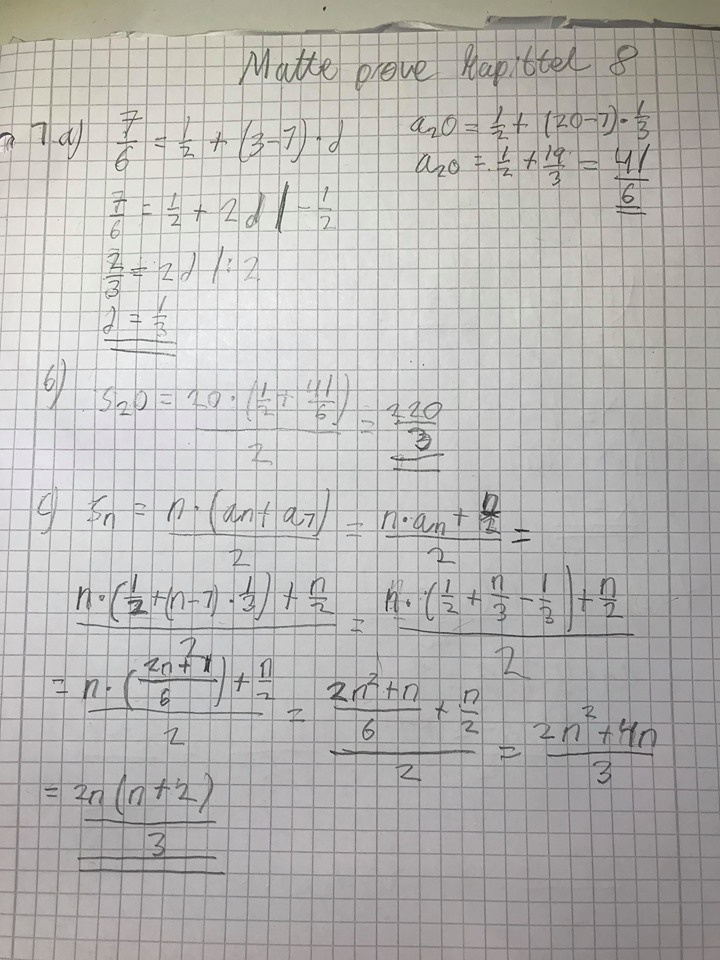 Matte prøve Kapittel 8
1 a) 7/6 = 1/2 + (3-1)·d
7/6 = 1/2 + 2d |-1/2
2/3 = 2d |:2
d = 1/3
a20 = 1/2 + (20-1)·1/3
a20 = 1/2 + 19/3 = 41/6
b) S20 = 20·(1/2 + 41/6)/2 = 220/3
c) Sn = n·(an+a1)/2 = n·an + n/2 / 2 =
n·(1/2+(n-1)·1/3) + n/2 / 2 = n·(1/2 + n/3 - 1/3) + n/2 / 2
= n·(2n+1/6) + n/2 / 2 = 2n²+n/6 + n/2 / 2 = 2n²+4n/3
= 2n(n+2)/3